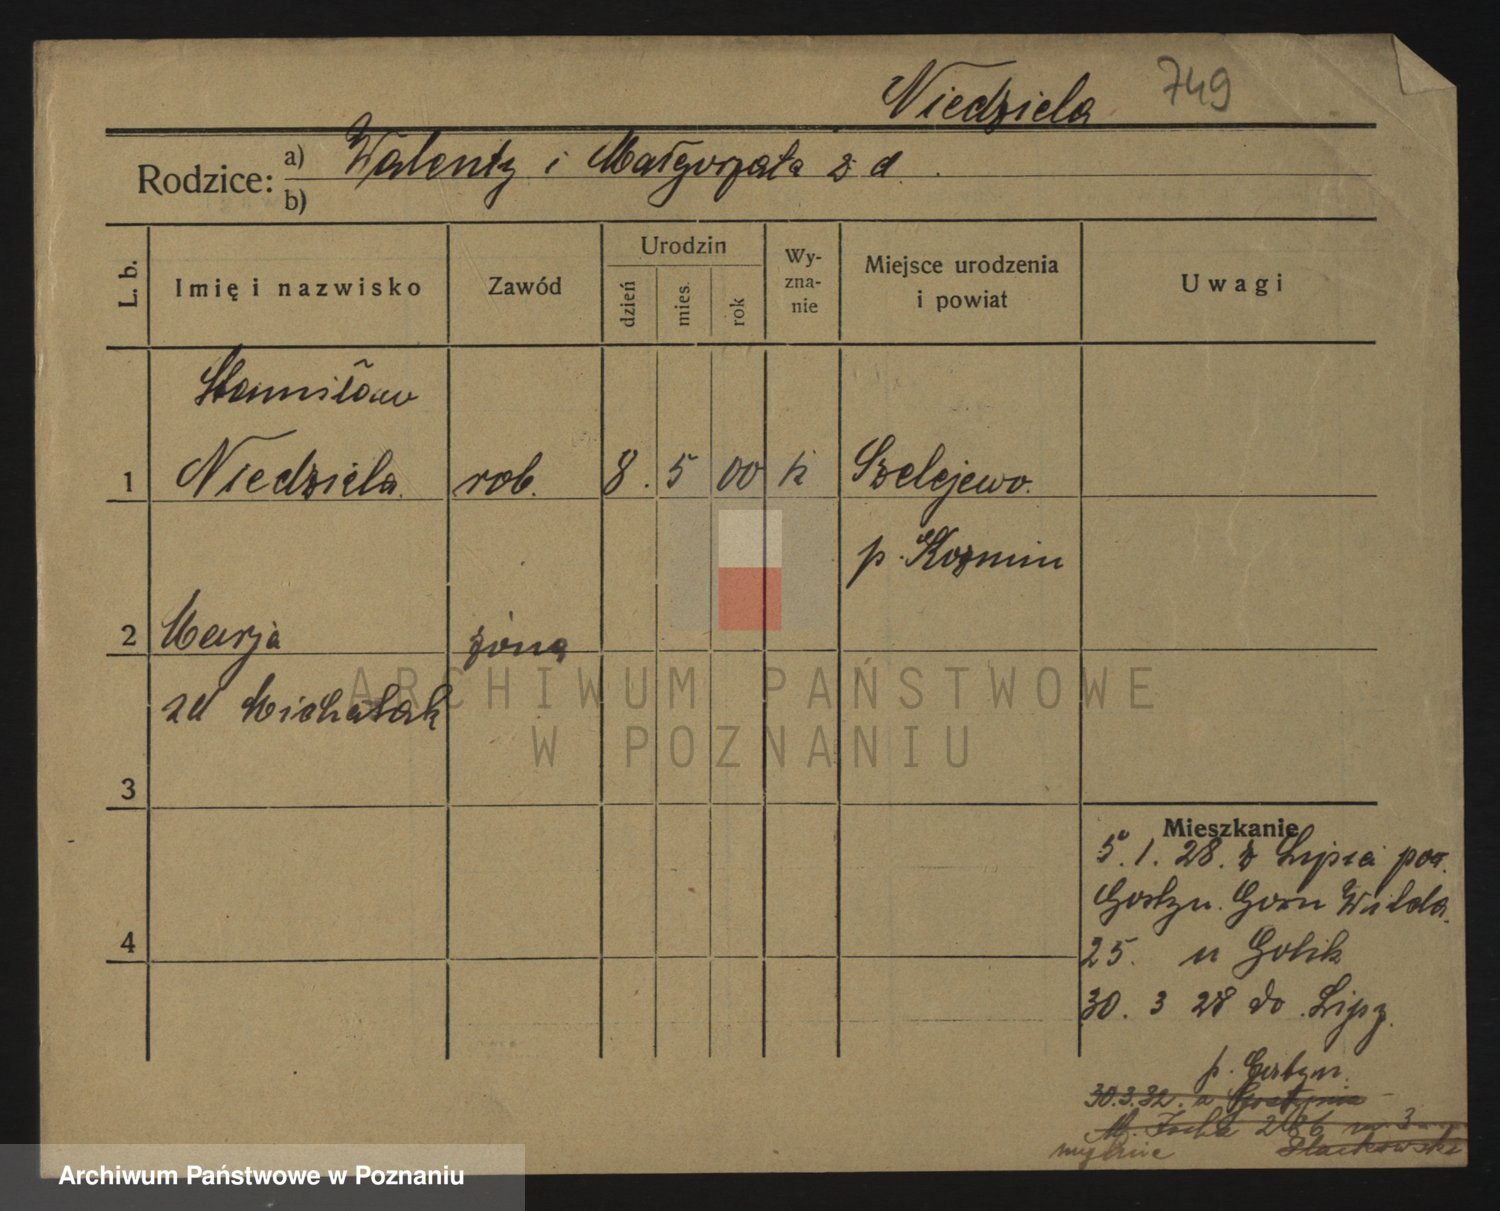 Niedziela 749
Rodzice: a) Walenty i Małgorzata z d.
b)
L. b. Imię i nazwisko Zawód Urodzin dzień mies. rok Wy-zna-nie Miejsce urodzenia i powiat Uwagi
Stanisław
1 Niedziela rob. 8. 5 00 k Szelejewo.
p. Kozmin
2 Marja żona
zd Michalak
3
Mieszkanie
5. 1. 28. z Lipia pow.
Gostyn. Gorn Wilda
4
25. u Golik
30. 3 28 do Lipy
p. Gostyn.
30.3.32. z Gostynia
M. Focha 3
mylnie
ARCHIWUM PAŃSTWOWE
W POZNANIU
Archiwum Państwowe w Poznaniu